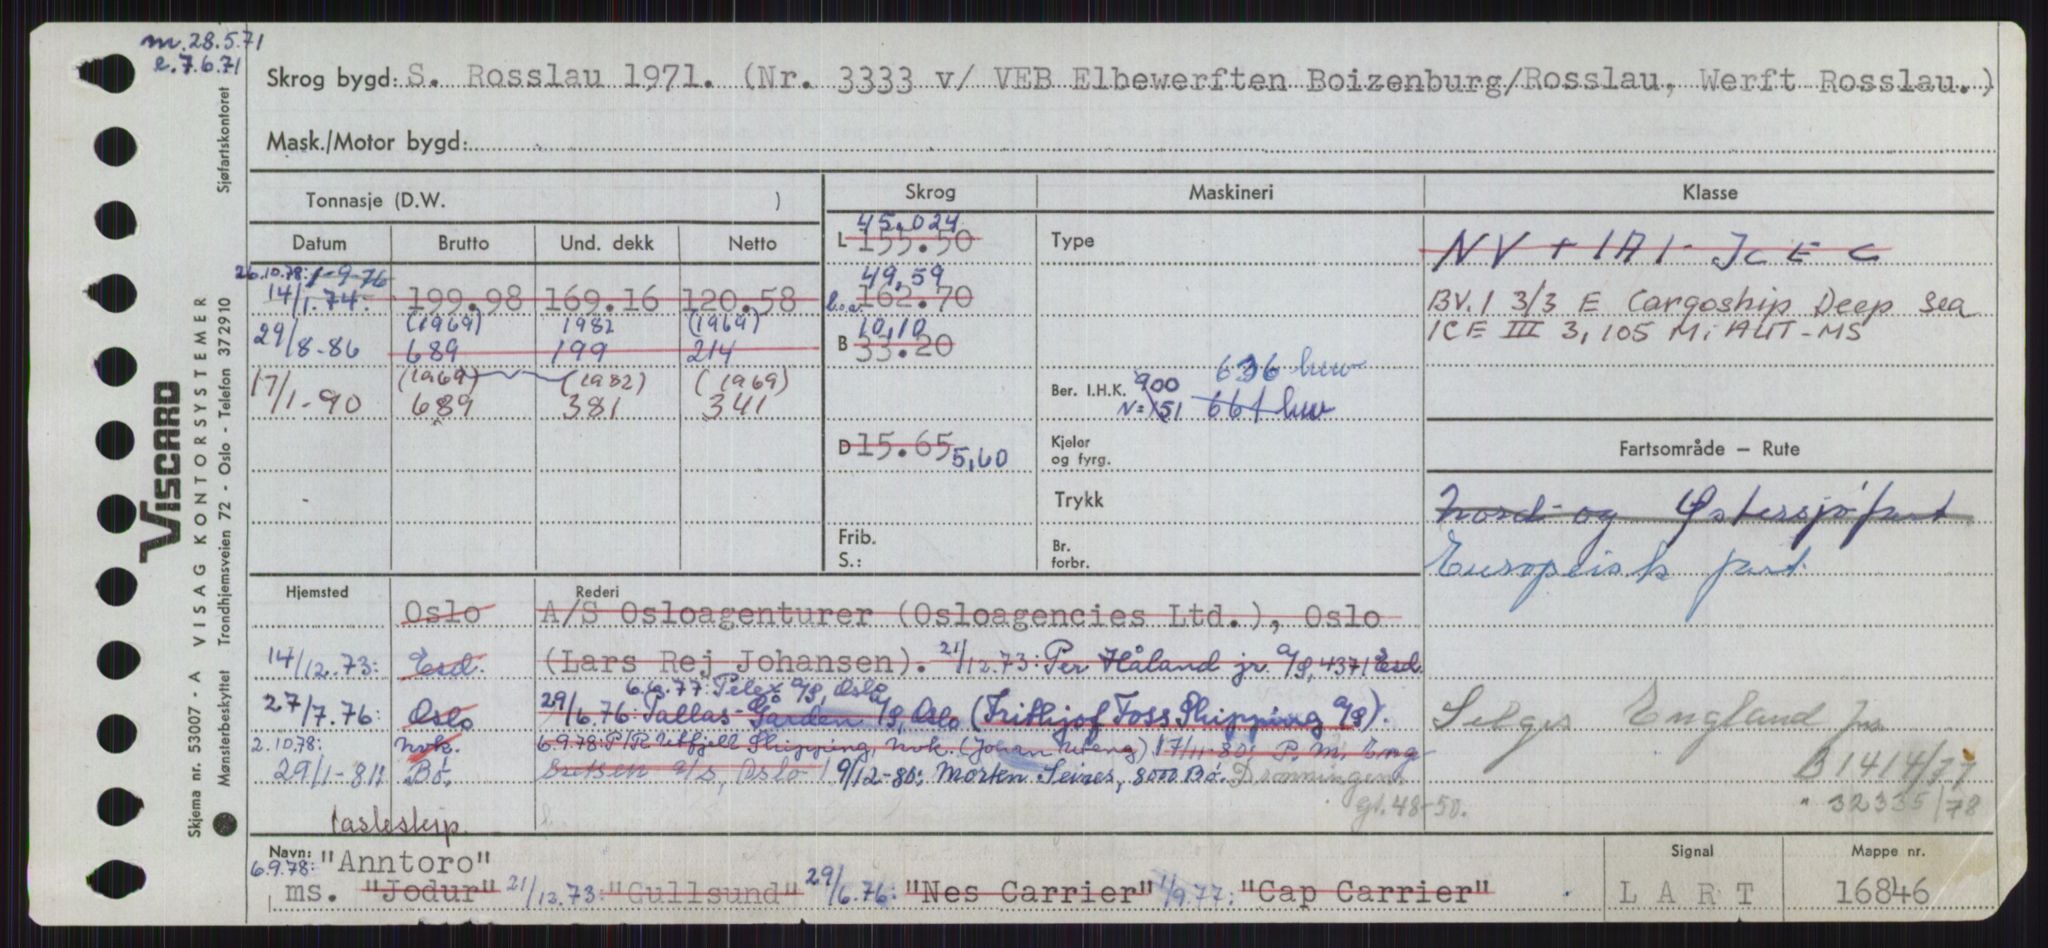 m. 28.5.71
e. 7.6.71
Skrog bygd: S. Rosslau 1971. (Nr. 3333 v/ VEB Elbewerften Boizenburg/Rosslau, Werft Rosslau.)
Mask./Motor bygd:
Tonnasje (D.W. )
Datum Brutto Und. dekk Netto
26.10.78: 1-9-76
14/1.74: 199.98 169.16 120.58
(1969) 1982 (1969)
29/8-86 689 199 214
(1969) (1982) (1969)
17/1-90 689 381 341
Skrog
45,024
L 155.50
49,59
l.o.a. 162.70
10,10
B 33.20
D 15.65 5,60
Frib.
S.:
Maskineri
Type
636 hw
Ber. I.H.K. 900
N=151 661 hw
Kjeler
og fyrg.
Trykk
Br.
forbr.
Klasse
NV + 1A1 - Ice C
BV. I 3/3 E Cargoship Deep Sea
ICE III 3, 105 M. AUT-MS
Fartsområde — Rute
Nord- og Østersjøfart
Europeisk fart.
Selges England
B 1414/77
" 32335/78
Hjemsted Rederi
Oslo A/S Osloagenturer (Osloagencies Ltd.), Oslo
14/12.73: Esd. (Lars Rej Johansen). 21/12.73: Per Håland jr. A/S, 4371 Esd.
6.6.77: Pelex A/S, Oslo
27/7.76: Oslo 29/6.76: Tallas-Garden A/S, Oslo (Frithjof Foss Shipping A/S).
2.10.78: Nvk. 6.9.78: P/R Utfjell Shipping, Nvk. (Johan ) 17/11-80: P. M. Eng-
29/1-81: Bø. A/S, Oslo 9/12-80: Morten Seines, 8000 Bø. Dronningens
gt. 48-50.
lasteskip.
Navn: "Anntoro"
6.9.78:
ms. "Jodur" 21/12.73: "Gullsund" 29/6.76: "Nes Carrier" 1/9.77: "Cap Carrier"
Signal
L A R T
Mappe nr.
16846
Skjema nr. 53007 - A VISAG KONTORSYSTEMER
VISCARD
Mønsterbeskyttet Trondhjemsveien 72 - Oslo - Telefon 372910 Sjøfartskontoret